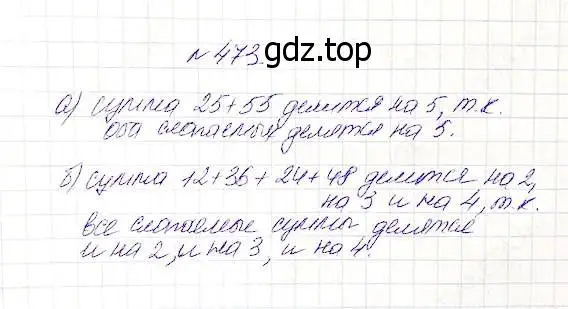 №473.
gdz.top
а) сумма 25+55 делится на 5, т.к.
оба слагаемых делятся на 5.
б) сумма 12+36+24+48 делится на 2,
на 3 и на 4, т.к.
все слагаемые суммы делятся
и на 2, и на 3, и на 4.